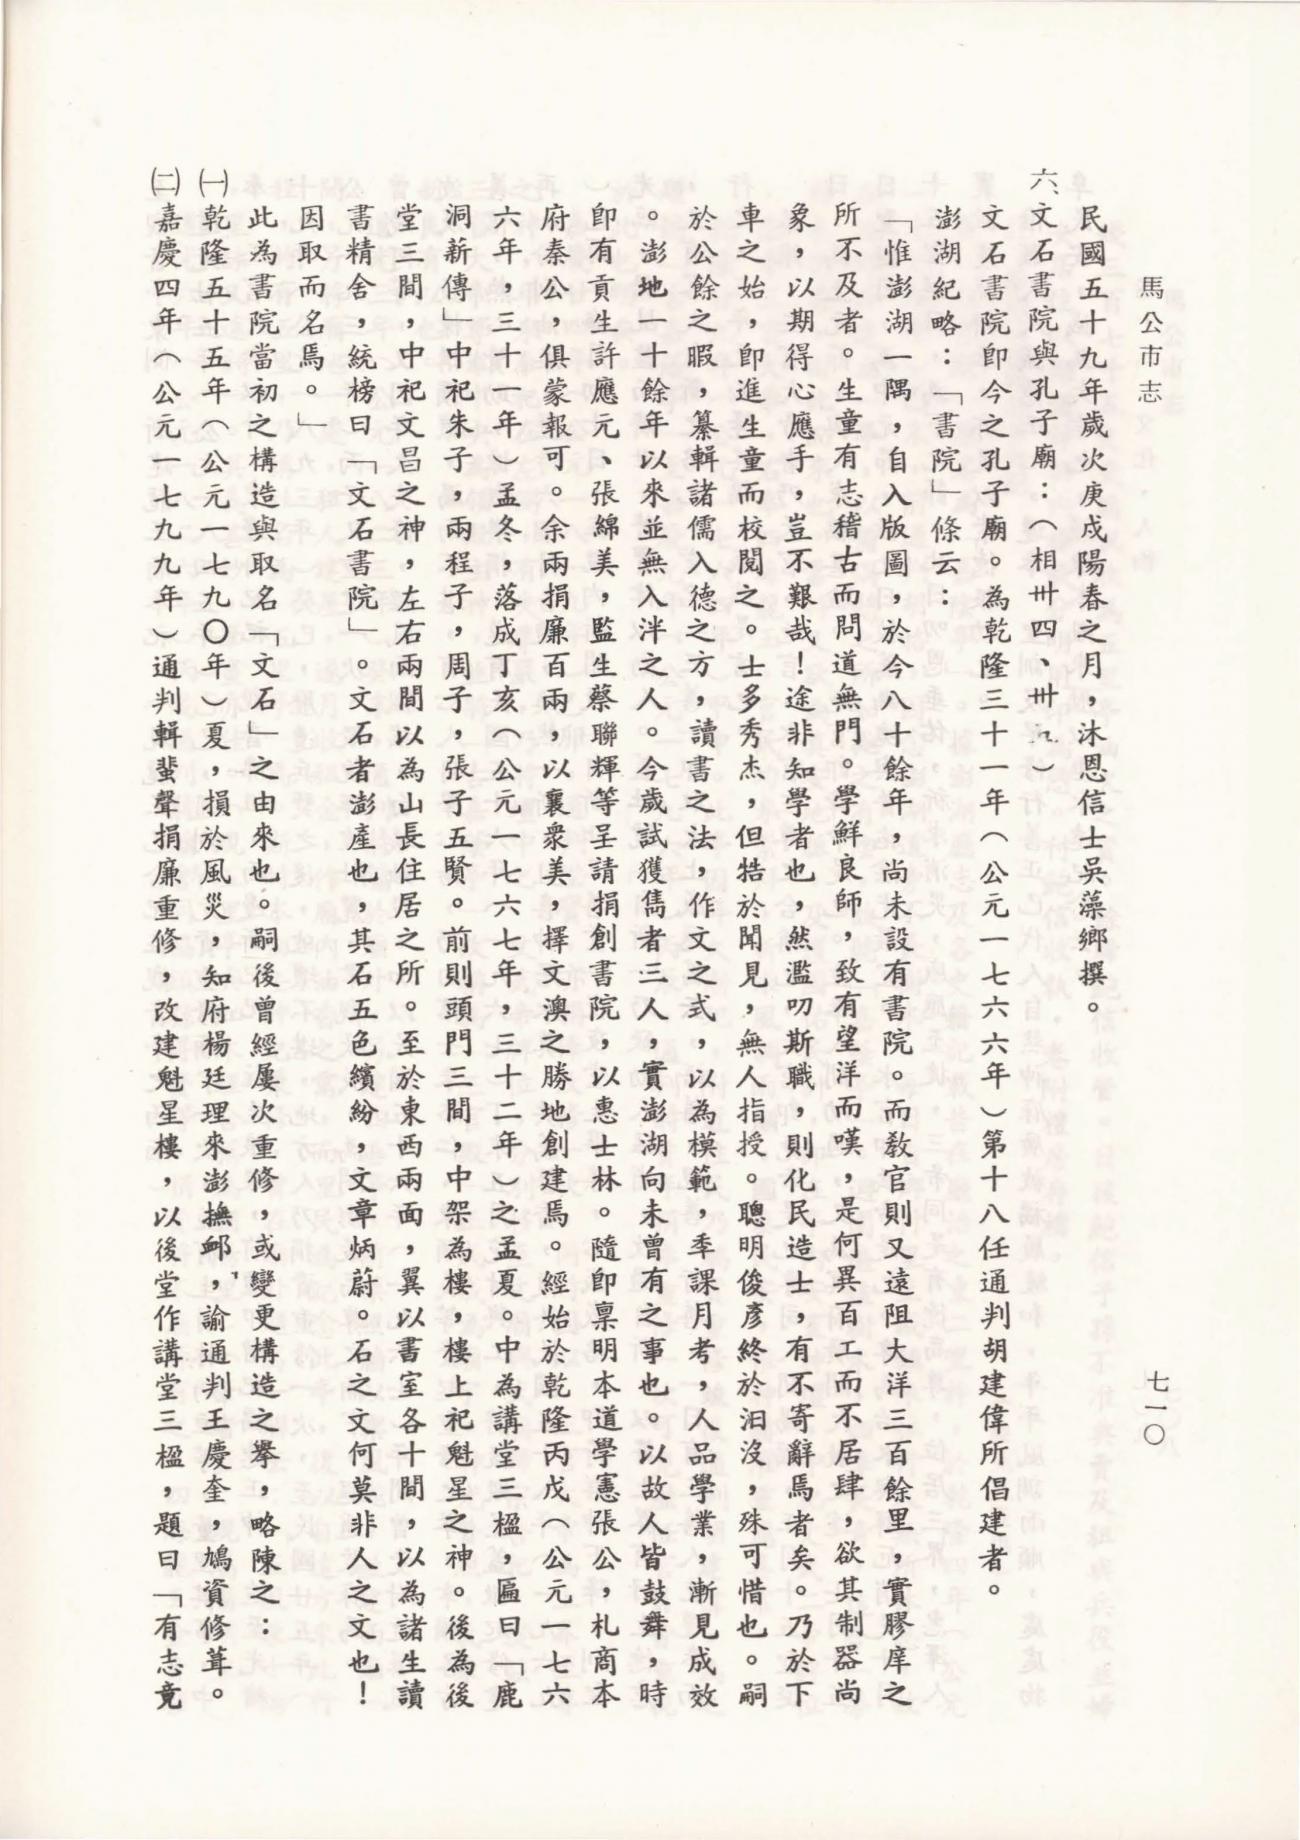 馬公市志
七一〇
民國五十九年歲次庚戍陽春之月，沐恩信士吳藻鄉撰。
六、文石書院與孔子廟：（相卅四、卅九）
文石書院卽今之孔子廟。為乾隆三十一年（公元一七六六年）第十八任通判胡建偉所倡建者。
澎湖紀略：「書院」條云：
「惟澎湖一隅，自入版圖，於今八十餘年，尚未設有書院。而敎官則又遠阻大洋三百餘里，實膠庠之
所不及者。生童有志稽古而問道無門。學鮮良師，致有望洋而嘆，是何異百工而不居肆，欲其制器尚
象，以期得心應手，豈不艱哉！途非知學者也，然濫叨斯職，則化民造士，有不寄辭焉者矣。乃於下
車之始，卽進生童而校閱之。士多秀杰，但牿於聞見，無人指授。聰明俊彥終於汨沒，殊可惜也。嗣
於公餘之暇，纂輯諸儒入德之方，讀書之法，作文之式，以為模範，季課月考，人品學業，漸見成效
。澎地一十餘年以來並無入泮之人。今歲試獲雋者三人，實澎湖向未曾有之事也。以故人皆鼓舞，時
卽有貢生許應元、張綿美，監生蔡聯輝等呈請捐創書院，以惠士林。隨卽稟明本道學憲張公，札商本
府秦公，俱蒙報可。余兩捐廉百兩，以襄衆美，擇文澳之勝地創建焉。經始於乾隆丙戊（公元一七六
六年，三十一年）孟冬，落成丁亥（公元一七六七年，三十二年）之孟夏。中為講堂三楹，匾曰「鹿
洞薪傳」中祀朱子，兩程子，周子，張子五賢。前則頭門三間，中架為樓，樓上祀魁星之神。後為後
堂三間，中祀文昌之神，左右兩間以為山長住居之所。至於東西兩面，翼以書室各十間，以為諸生讀
書精舍，統榜曰「文石書院」。文石者澎產也，其石五色繽紛，文章炳蔚。石之文何莫非人之文也！
因取而名焉。」
此為書院當初之構造與取名「文石」之由來也。嗣後曾經屢次重修，或變更構造之擧，略陳之：
㈠乾隆五十五年（公元一七九〇年）夏，損於風災，知府楊廷理來澎撫邺，諭通判王慶奎，鳩資修葺。
㈡嘉慶四年（公元一七九九年）通判輯蜚聲捐廉重修，改建魁星樓，以後堂作講堂三楹，題曰「有志竟